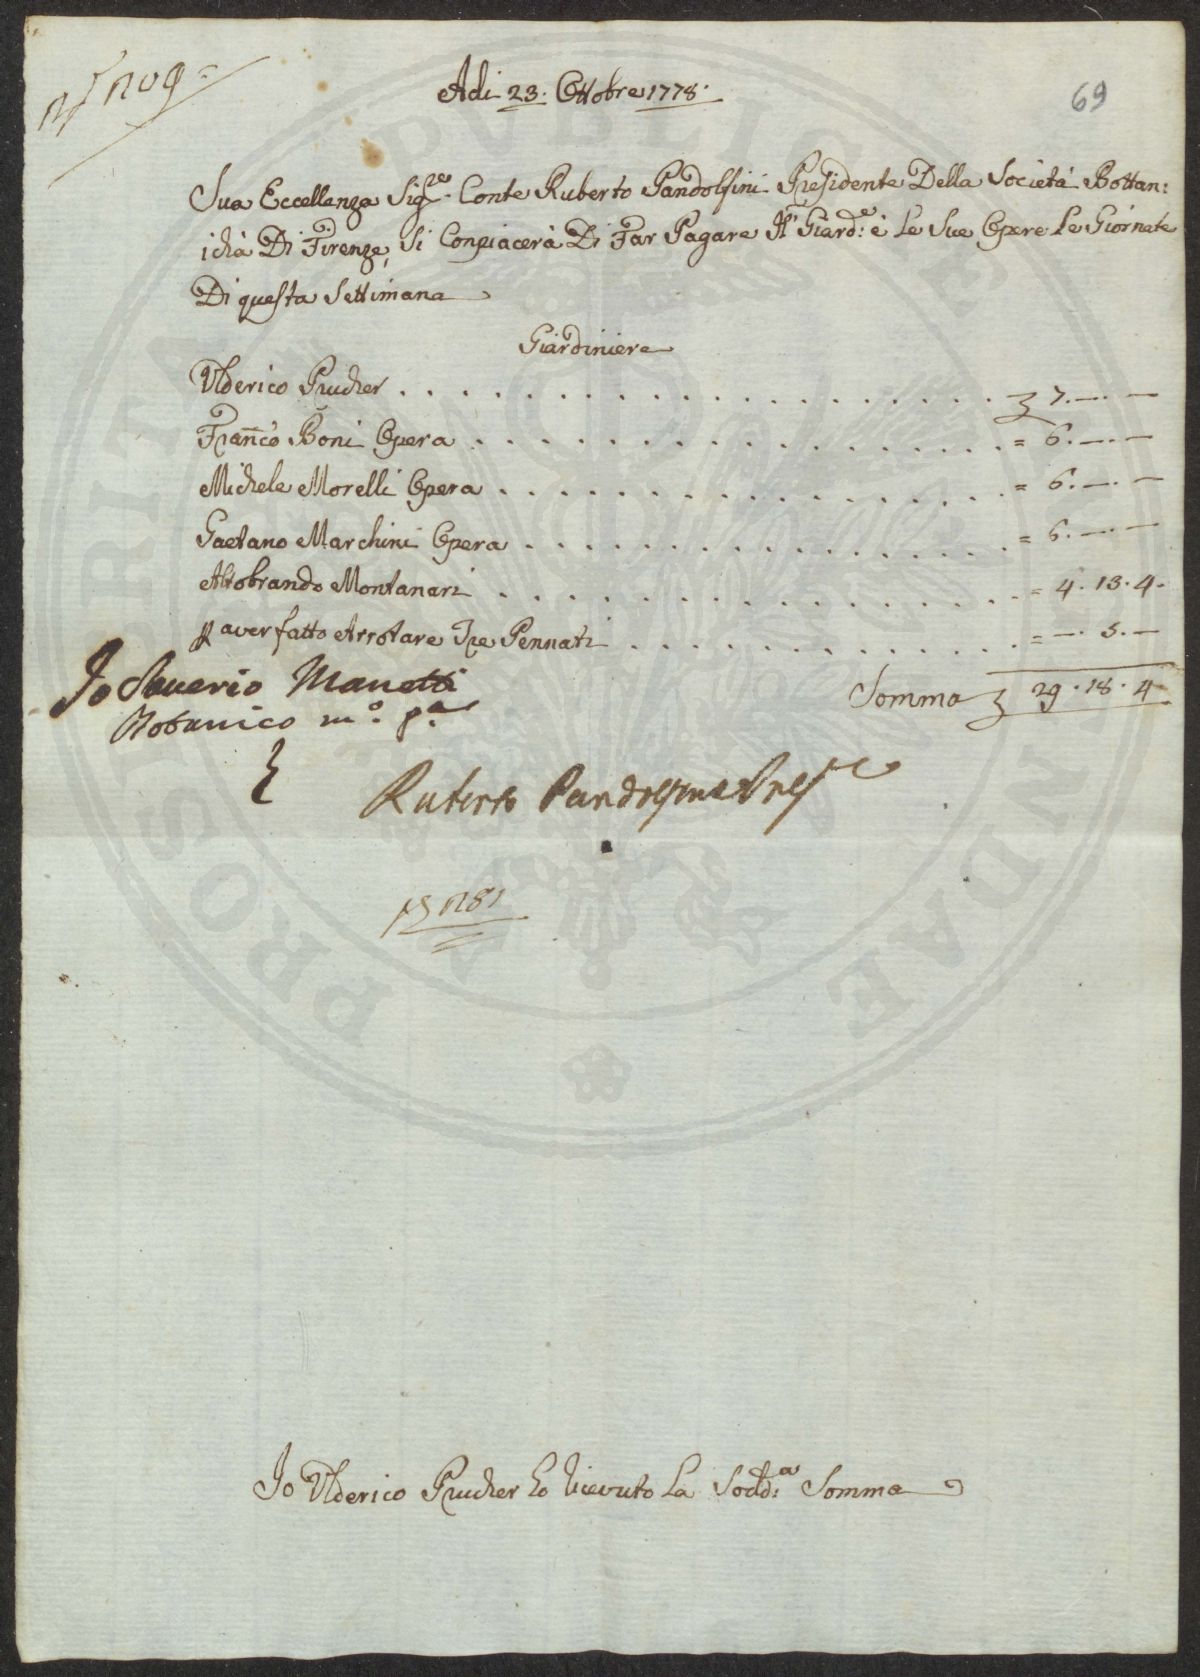 Adi 23. Ottobre 1778.
69
Sua Eccellenza Sigre. Conte Ruberto Pandolfini Presidente Della Società Bottan:
icha Di Firenze, Si Conpiacerà Di Far Pagare Il Giard:e è Le Sue Opere Le Giornate
Di questa Settimana
Giardiniere
Ulderico Prucher . . . . . . . . . . . . . . . . . . 7.—.—
Franco Boni Opera . . . . . . . . . . . . . . . . = 6.—.—
Michele Morelli Opera . . . . . . . . . . . . . . . = 6.—.—
Gaetano Marchini Opera . . . . . . . . . . . . . . = 6.—.—
Altobrando Montanari . . . . . . . . . . . . . . . = 4.13.4.
p aver fatto Arrotare Tre Pennati . . . . . . . . . . . = —.5.—
Somma 29.18.4
Io Saverio Manetti
Botanico mo. pa
Ruberto Pandolfini Pres
n 81
Io Ulderico Prucher ho Ricevuto La Sodd:a Somma
PROSPERITATI PVBLICAE AVGENDAE